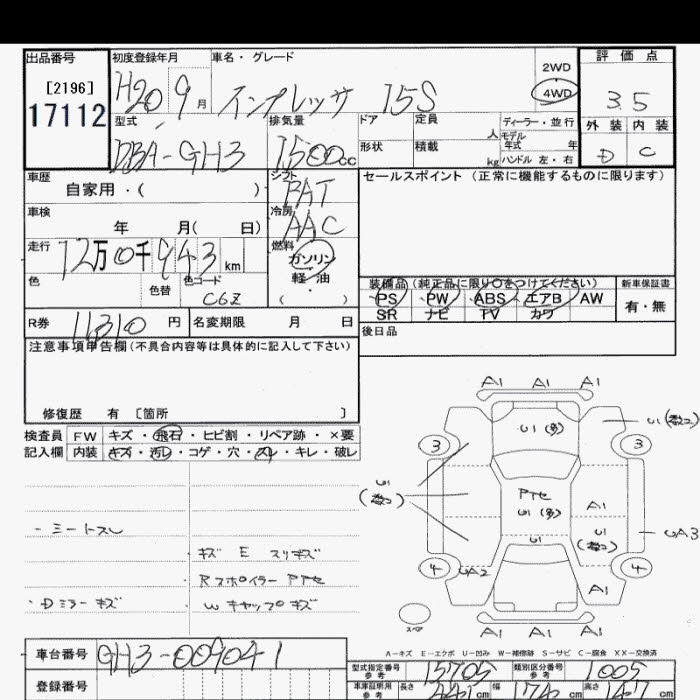 出品番号 初度登録年月 車名・グレード 評価点
[2196] H20 9月 インプレッサ 15S 2WD 4WD 3.5
17112
型式 排気量 ドア 定員 人 ディーラー・並行 外装 内装
DBA-GH3 1500cc 形状 積載 kg モデル年式 年 D C
ハンドル 左・右
車歴 シフト セールスポイント(正常に機能するものに限ります)
自家用・( ) FAT
車検 冷房
年 月( 日) AAC
走行 燃料
12万0千943km ガソリン
軽油
( )
色 色替 色コード 装備品(純正品に限り○をつけてください) 新車保証書
C6Z PS PW ABS エアB AW 有・無
SR ナビ TV カワ
R券 11310円 名変期限 月 日 後日品
注意事項申告欄(不具合内容等は具体的に記入して下さい)
修復歴 有 [箇所 ]
検査員 FW キズ・飛石・ヒビ割・リペア跡・×要
記入欄 内装 キズ・汚レ・コゲ・穴・スレ・キレ・破レ
・シートスレ
キズ E スリキズ
Rスポイラー PTセ
・Dミラーキズ Wキャップキズ
A1 A1 A1
U1(多) U1(数コ)
3 3
U1(数コ)
PTセ
U1(多) A1
U1 U1(数コ) UA3
4 UA2 4
A1
スペア
A1 A1 A1
A-キズ E-エクボ U-凹み W-補修跡 S-サビ C-腐食 XX-交換済
車台番号 GH3-009041
型式指定番号 参考 15705 類別区分番号 参考 1005
登録番号
車庫証明用 参考 長さ 441cm 幅 174cm 高さ 147cm